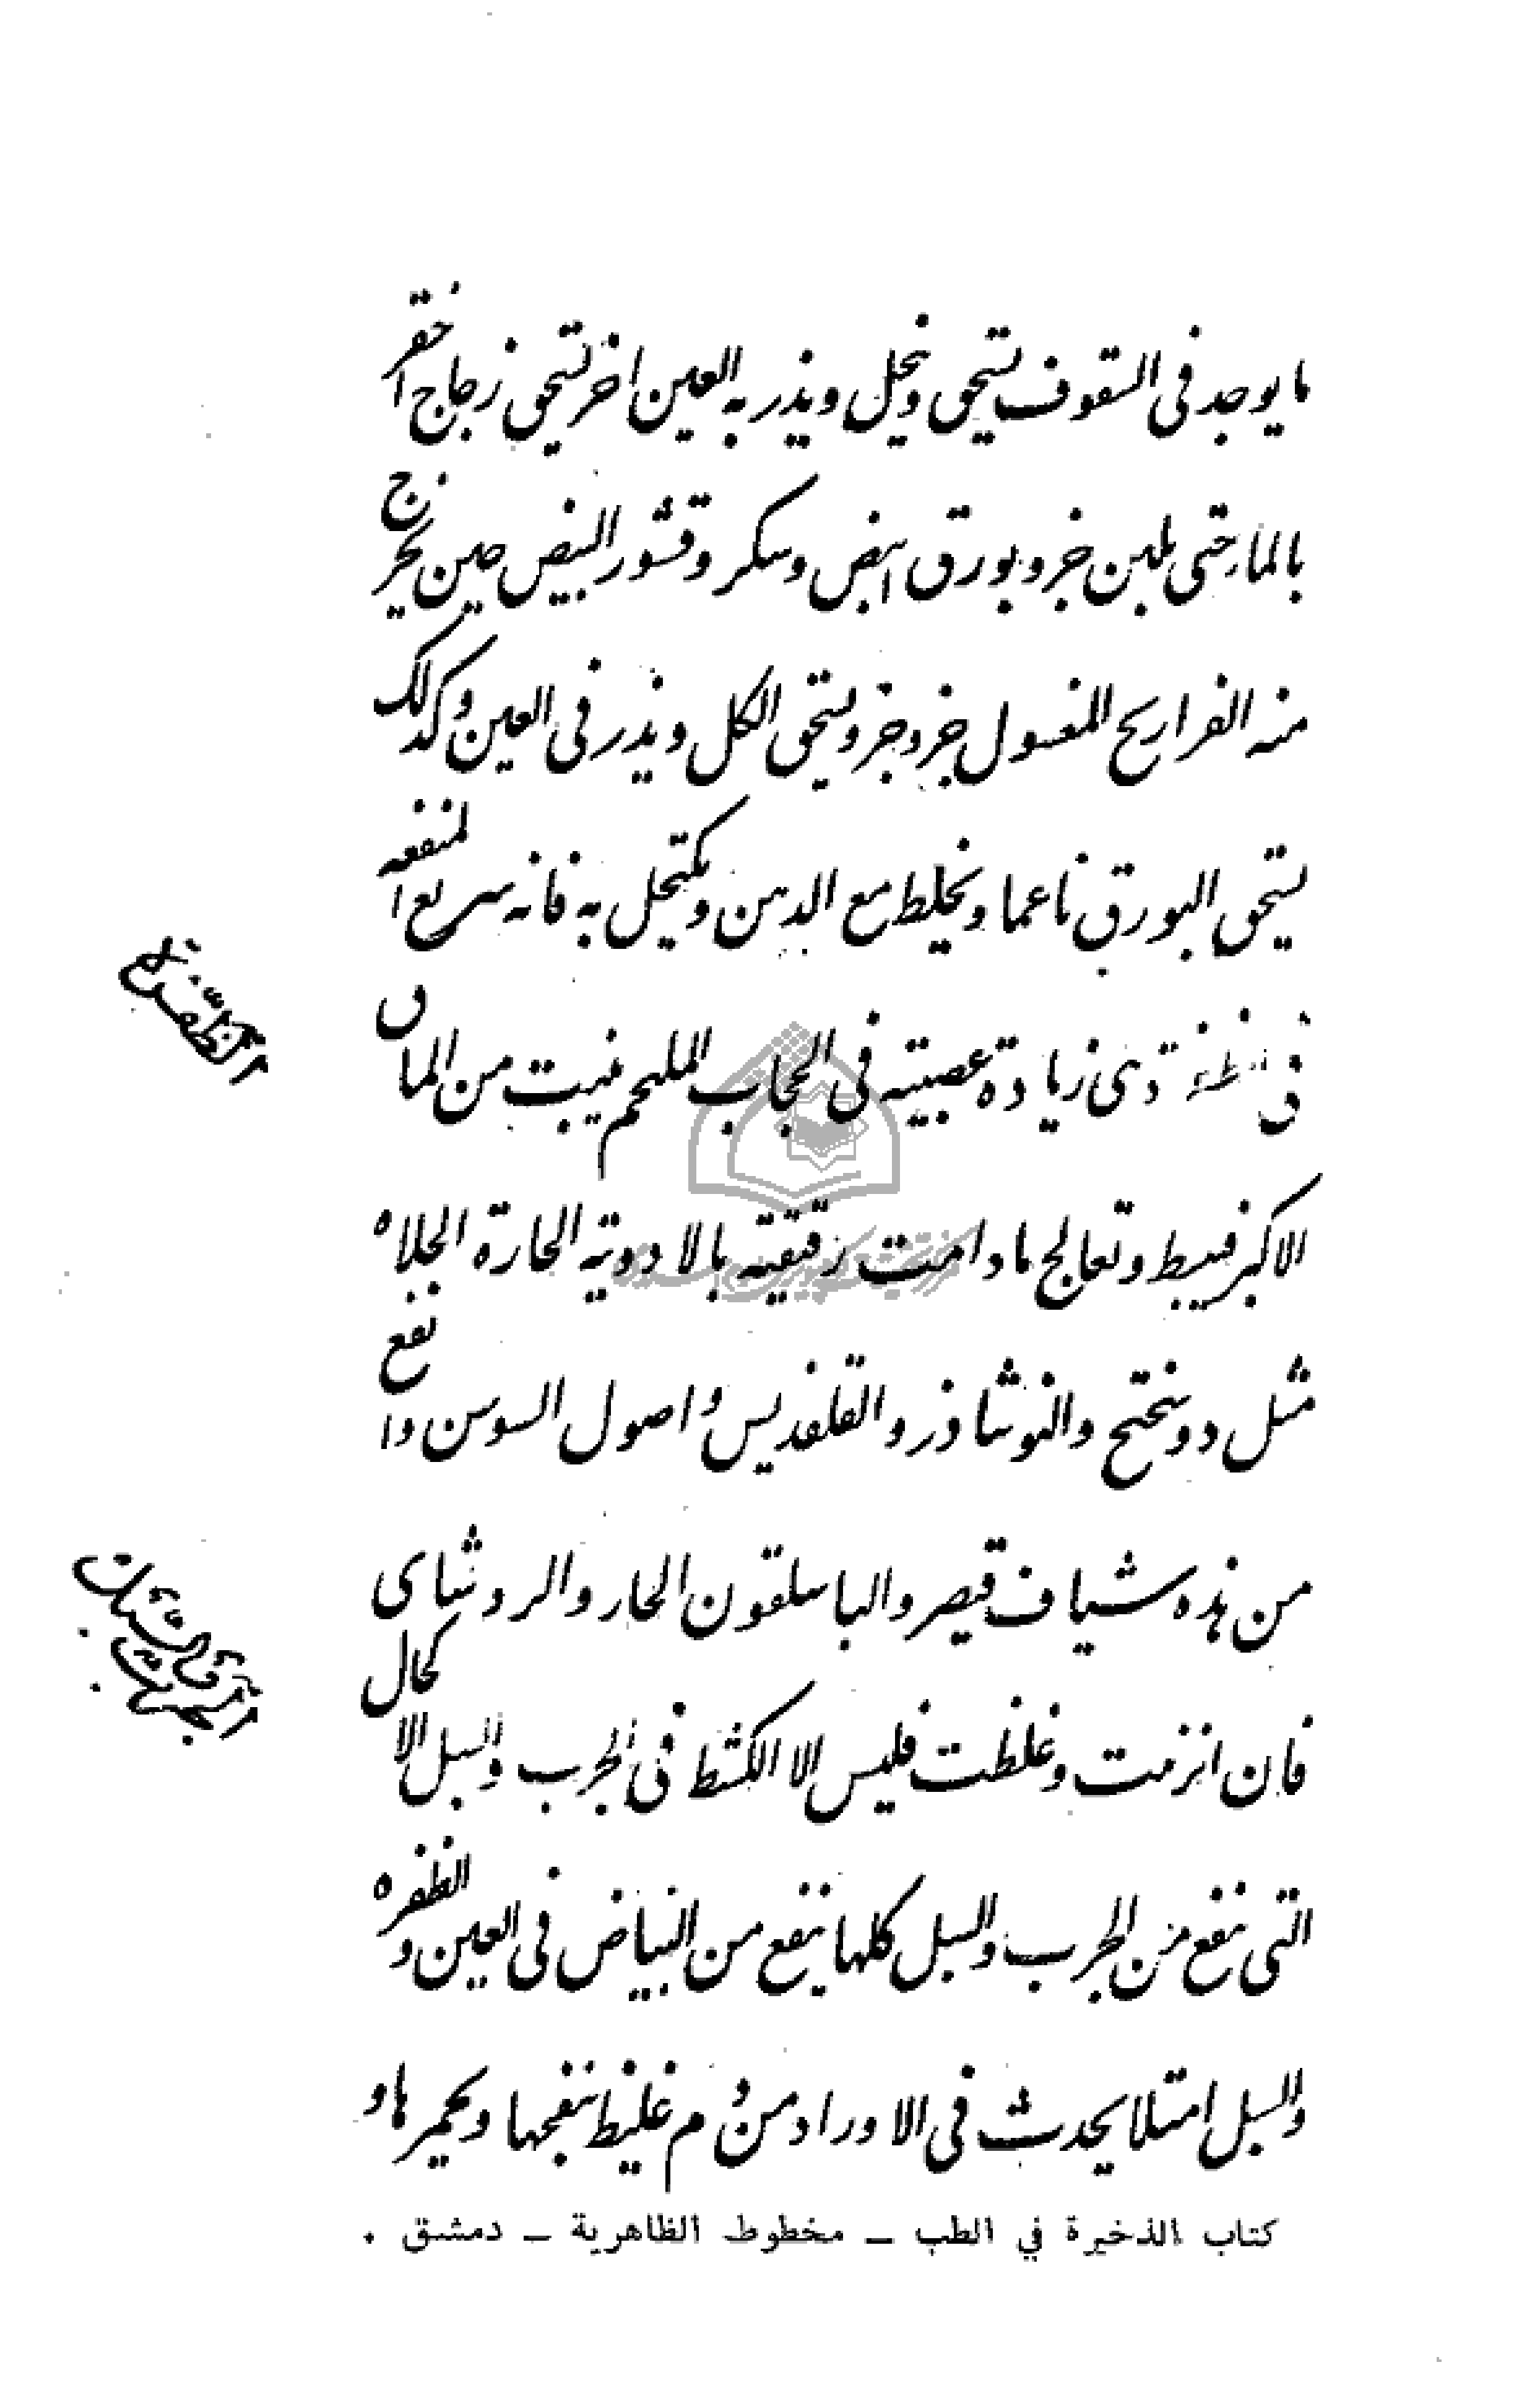 ما يوجد في السقوف يسحق وينخل ويذر به العين اخر يسحق زجاج اخضر
بالماء حتى يلين جزو بورق ابيض وسكر وقشور البيض حين يخرج
منه الفراريح المغسول جزو جزو يسحق الكل ويذر في العين وكذلك
يسحق البورق ناعما ويخلط مع الدهن ويكتحل به فانه سريع المنفعه
الظفرة
في الظفرة هي زيادة عصبية في الحجاب الملتحم ينبت من الماق
الاكبر فيبسط وتعالج مادامت رقيقة بالادوية الحارة الجلاه
مثل دوسختج والنوشاذر والقلقديس واصول السوسن وانفع
من هذه شياف قيصر والباسلقون الحار والروشناى
فان ازمنت وغلظت فليس الا الكشط في الجرب والسبل الاكحال
التى ينفع من الجرب والسبل كلها ينفع من البياض في العين والظفره
والسبل امتلا يحدث في الاوراد من دم غليظ ينفجها ويحمرها و
كتاب الذخيرة في الطب – مخطوط الظاهرية – دمشق .